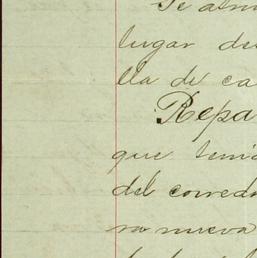 Te
lugar de
lla de ca
Repa
que tenia
del corred
ra nueva